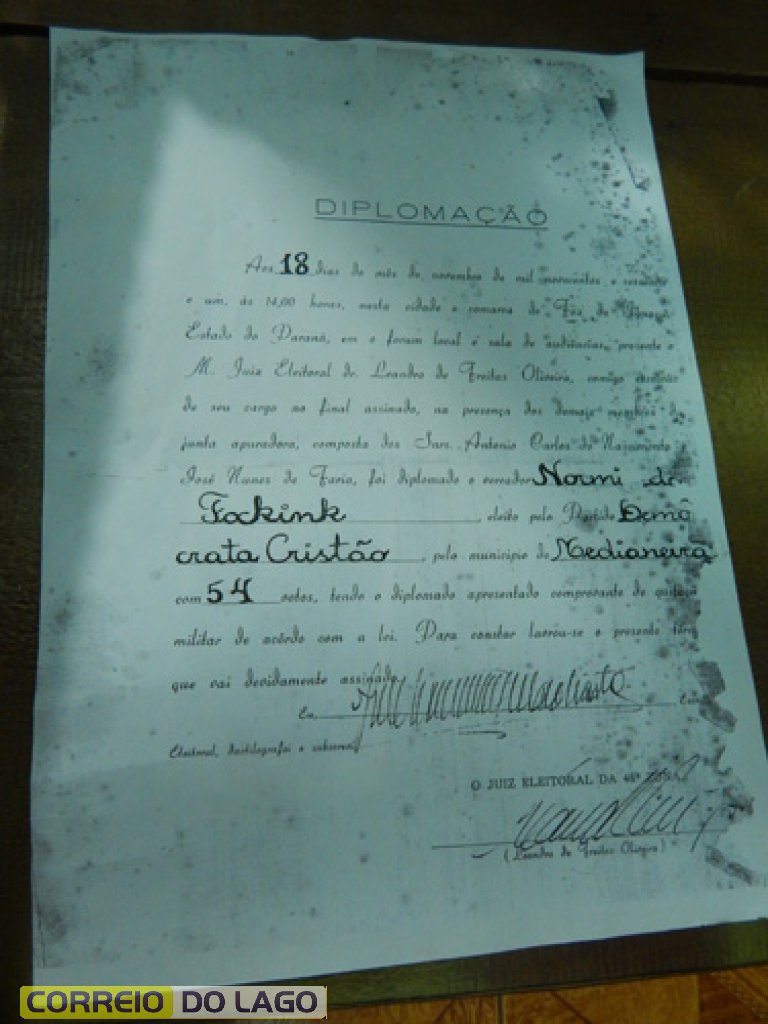 DIPLOMAÇÃO
Aos 18 dias do mês de novembro de mil novecentos e sessenta
e um, ás 14,00 horas, nesta cidade e comarca de Foz do
Estado do Paraná, em o forum local e sala de audiências, presente o
M. Juiz Eleitoral dr. Leandro de Freitas Oliveira, comigo
de seu cargo no final assinado, na presença dos demais membros da
junta apuradora, composta dos Snrs. Antonio Carlos do Nascimento
José Nunes de Faria, foi diplomado o vereador Noemi de
Fockink, eleito pelo Partido Demo
crata Cristão, pelo município de Medianeira
com 54 votos, tendo o diplomado apresentado comprovante de
militar de acôrdo com a lei. Para constar lavrou-se o presente
que vai devidamente assinado
Eu
Eleitoral, dactilografei e subscrevi
O JUIZ ELEITORAL DA 46ª ZONA
(Leandro de Freitas Oliveira)
CORREIO DO LAGO